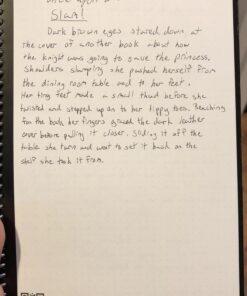 Slam!
Dark brown eyes stared down at
the cover of another book about how
the knight was going to save the princess.
Shoulders slumping she pushed herself from
the dining room table and to her feet.
Her tiny feet made a small thud before she
twisted and stepped up on to her tippy toes. Reaching
for the book, her fingers grazed the dark leather
cover before pulling it closer. Sliding it off the
table she turn and went to set it back on the
shelf she took it from.